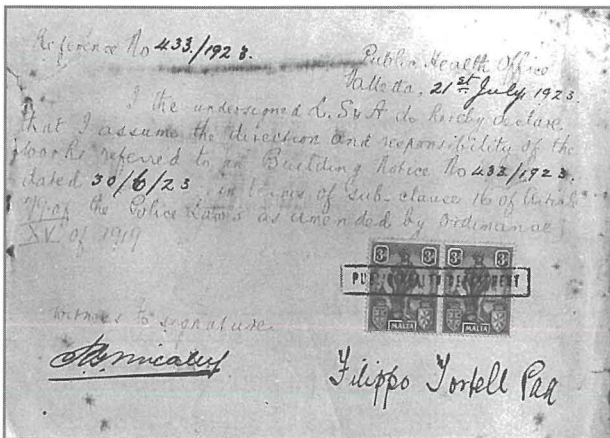 Reference No 433./1923.
Public Health Office
Valletta, 21st July, 1923.
I the undersigned L. S & A do hereby declare
that I assume the direction and responsibility of the
works referred to in Building Notice No 433/1923.
dated 30/6/23 in terms of sub-clause 16 of Article
79 of the Police Laws as amended by Ordinance
XV of 1919
3d 3d 3d 3d
PUBLIC HEALTH DEPARTMENT
MALTA MALTA
Witness to signature
Filippo Tortell